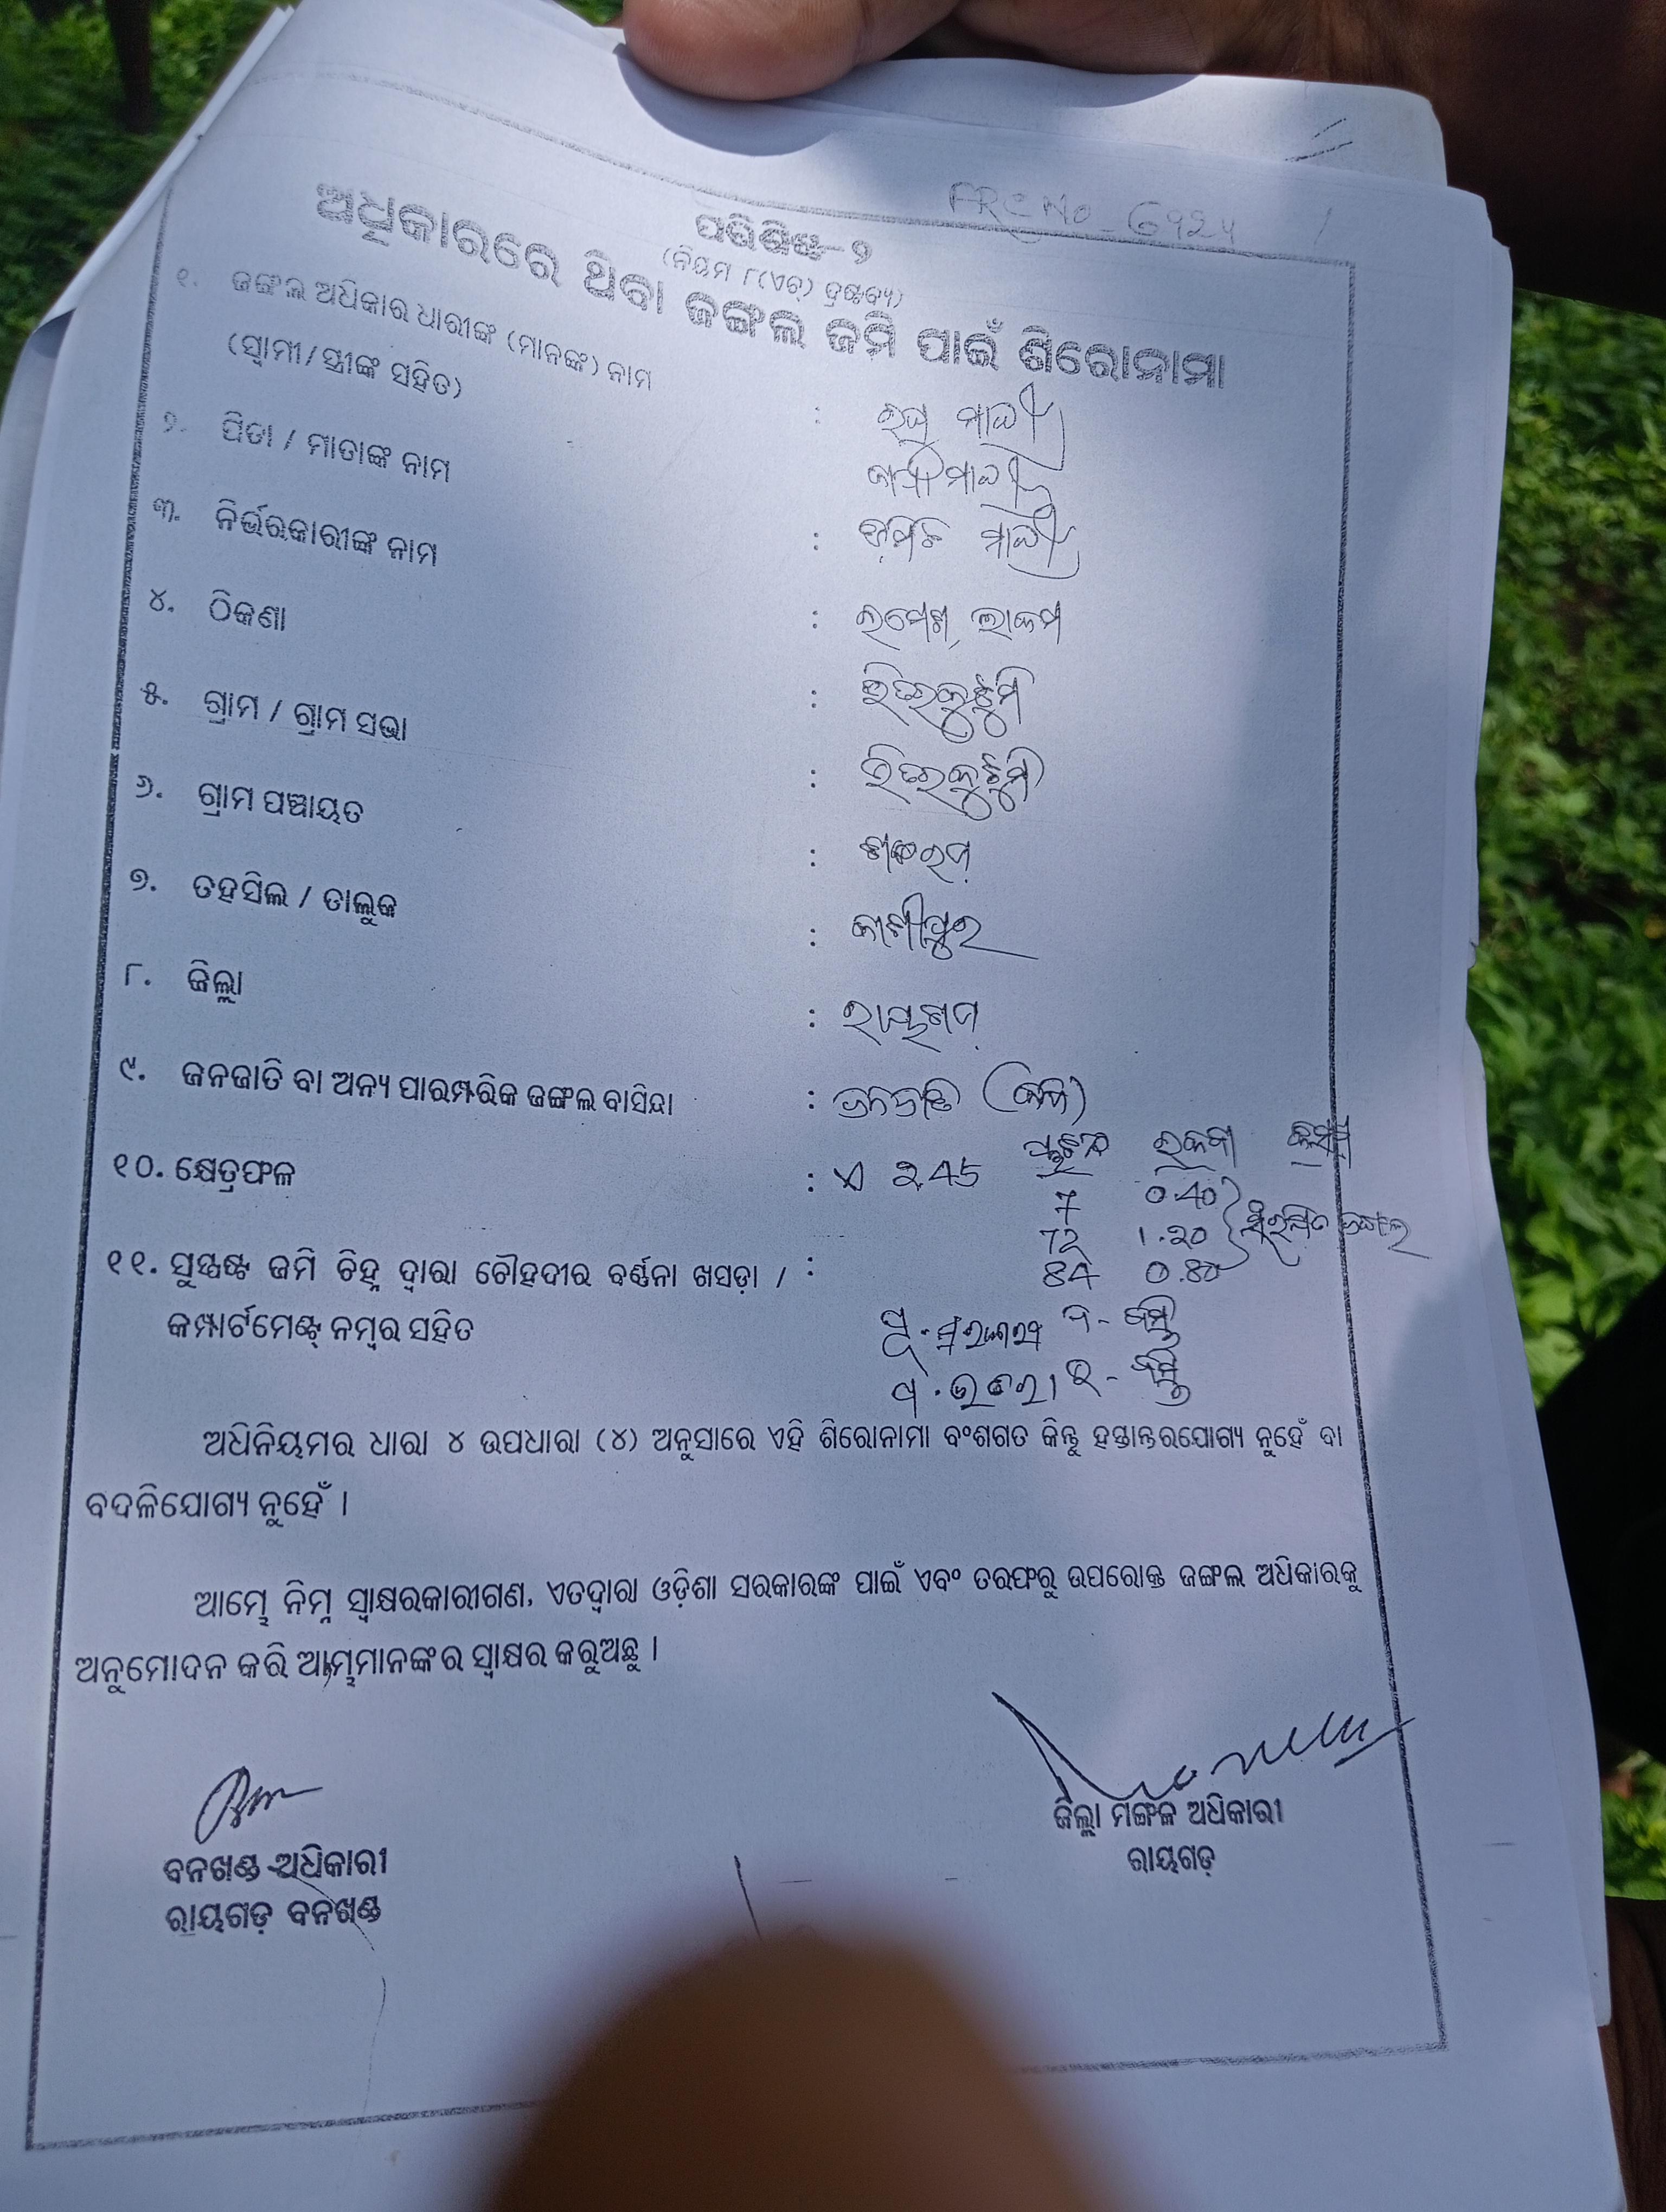 FRC No - 6924
ପରିଶିଷ୍ଟ - ୨
(ନିୟମ ୮(ଏଚ୍) ଦ୍ରଷ୍ଟବ୍ୟ)
ଅଧିକାରରେ ଥିବା ଜଙ୍ଗଲ ଜମି ପାଇଁ ଶିରୋନାମା
୧. ଜଙ୍ଗଲ ଅଧିକାର ଧାରୀଙ୍କ (ମାନଙ୍କ) ନାମ
(ସ୍ୱାମୀ/ସ୍ତ୍ରୀଙ୍କ ସହିତ) : ରଘୁ ମାଝୀ
୨. ପିତା / ମାତାଙ୍କ ନାମ : ମାଝୀ
୩. ନିର୍ଭରକାରୀଙ୍କ ନାମ :
୪. ଠିକଣା :
୫. ଗ୍ରାମ / ଗ୍ରାମ ସଭା :
୬. ଗ୍ରାମ ପଞ୍ଚାୟତ :
୭. ତହସିଲ / ତାଲୁକ : କାଶୀପୁର
୮. ଜିଲ୍ଲା : ରାୟଗଡ଼
୯. ଜନଜାତି ବା ଅନ୍ୟ ପାରମ୍ପରିକ ଜଙ୍ଗଲ ବାସିନ୍ଦା : ଜନଜାତି
୧୦. କ୍ଷେତ୍ରଫଳ : ଏ 2.45 ପ୍ଲଟ ନଂ ରକବା କିସମ
7 0.40
72 1.20 ସଂରକ୍ଷିତ ଜଙ୍ଗଲ
84 0.80
୧୧. ସୁସ୍ପଷ୍ଟ ଜମି ଚିହ୍ନ ଦ୍ୱାରା ଚୌହଦୀର ବର୍ଣ୍ଣନା ଖସଡ଼ା / :
କମ୍ପାର୍ଟମେଣ୍ଟ୍ ନମ୍ବର ସହିତ
ଅଧିନିୟମର ଧାରା ୪ ଉପଧାରା (୪) ଅନୁସାରେ ଏହି ଶିରୋନାମା ବଂଶଗତ କିନ୍ତୁ ହସ୍ତାନ୍ତରଯୋଗ୍ୟ ନୁହେଁ ବା
ବଦଳିଯୋଗ୍ୟ ନୁହେଁ ।
ଆମ୍ଭେ ନିମ୍ନ ସ୍ୱାକ୍ଷରକାରୀଗଣ, ଏତଦ୍ୱାରା ଓଡ଼ିଶା ସରକାରଙ୍କ ପାଇଁ ଏବଂ ତରଫରୁ ଉପରୋକ୍ତ ଜଙ୍ଗଲ ଅଧିକାରକୁ
ଅନୁମୋଦନ କରି ଆମ୍ଭମାନଙ୍କର ସ୍ୱାକ୍ଷର କରୁଅଛୁ ।
ବନଖଣ୍ଡ ଅଧିକାରୀ
ରାୟଗଡ଼ ବନଖଣ୍ଡ
ଜିଲ୍ଲା ମଙ୍ଗଳ ଅଧିକାରୀ
ରାୟଗଡ଼